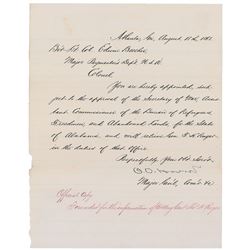 Atlanta, Ga. August 15th, 186
Bvt. Lt. Col. Edwin Beecher
Major Paymaster's Dept. U.S.A.
Colonel
You are hereby appointed, sub-
ject to the approval of the Secretary of War, Assistant
Commissioner of the Bureau of Refugees,
Freedmen and Abandoned Lands, for the State of
Alabama, and will relieve Gen.
in the duties of that office.
Respectfully, Your Obt. Servt.
O. O. Howard
Major Genl. Comr &c
Official Copy
Forwarded for the information of